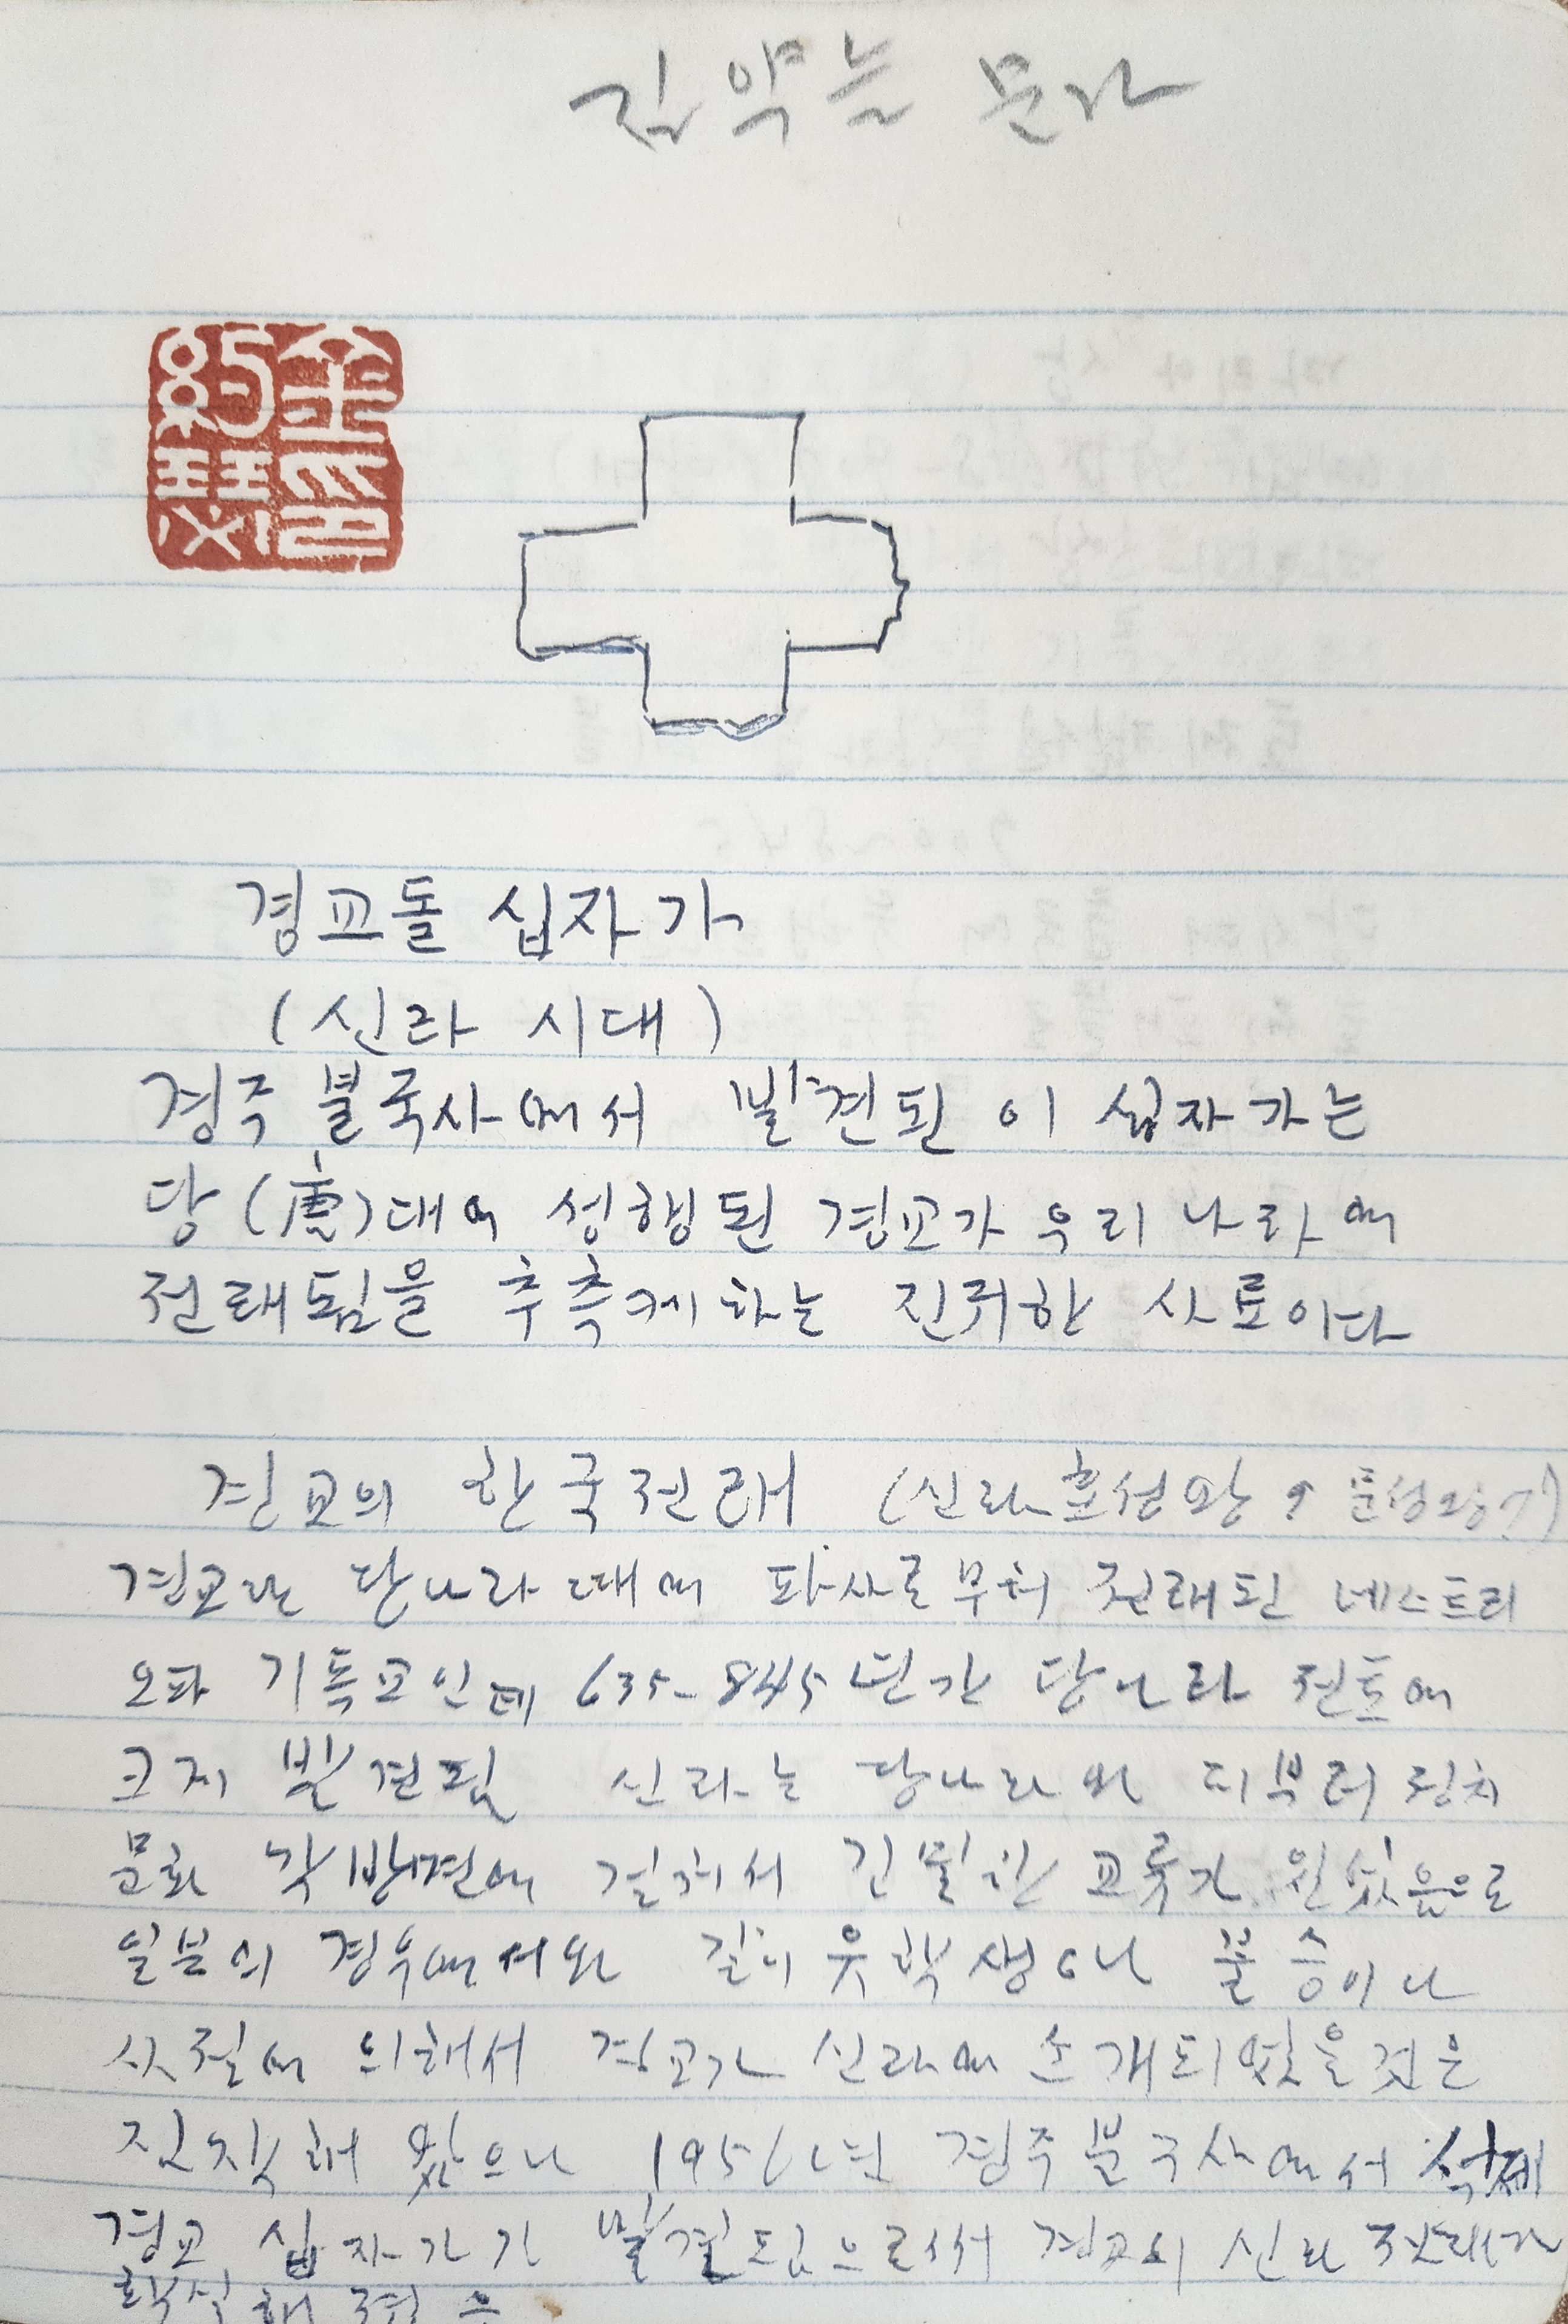 김약슬 문과
金約瑟印
경교돌 십자가
(신라 시대)
경주 불국사에서 발견된 이 십자가는
당(唐)대에 성행된 경교가 우리 나라에
전래됨을 추측케하는 진귀한 사료이다
경교의 한국전래 (신라 효성왕, 문성왕?)
경교란 당나라 때에 파사로부터 전래된 네스트리
오파 기독교인데 635-845년간 당나라 전토에
크게 발견됨 신라는 당나라와 더부러 정치
문화 각방면에 걸처서 긴밀한 교류가 있었음으로
일본의 경우에서와 같이 유학생이나 불승이나
사절에 의해서 경교가 신라에 소개되였을것은
짐작해 왔으나 1956년 경주불국사에서 석제
경교 십자가가 발견됨으로서 경교의 신라 전래가
확실해 졌음